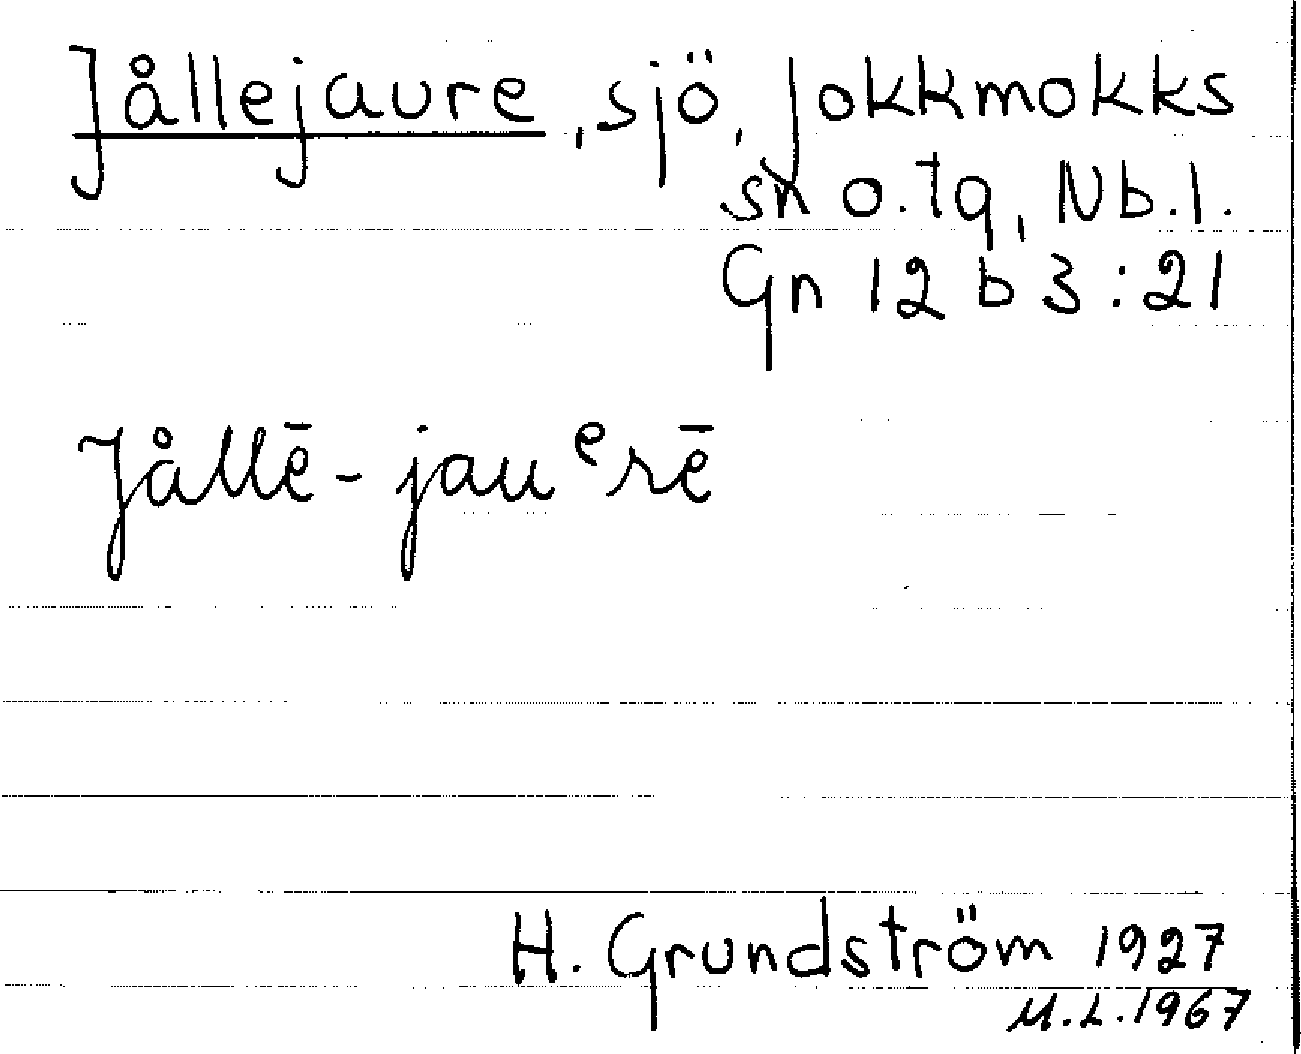 Jållejaure, sjö, Jokkmokks
sn o. tg, Nb. l.
Gn 12 b 3:21
Jållē-jauᵉrē
H. Grundström 1927
M.L. 1967